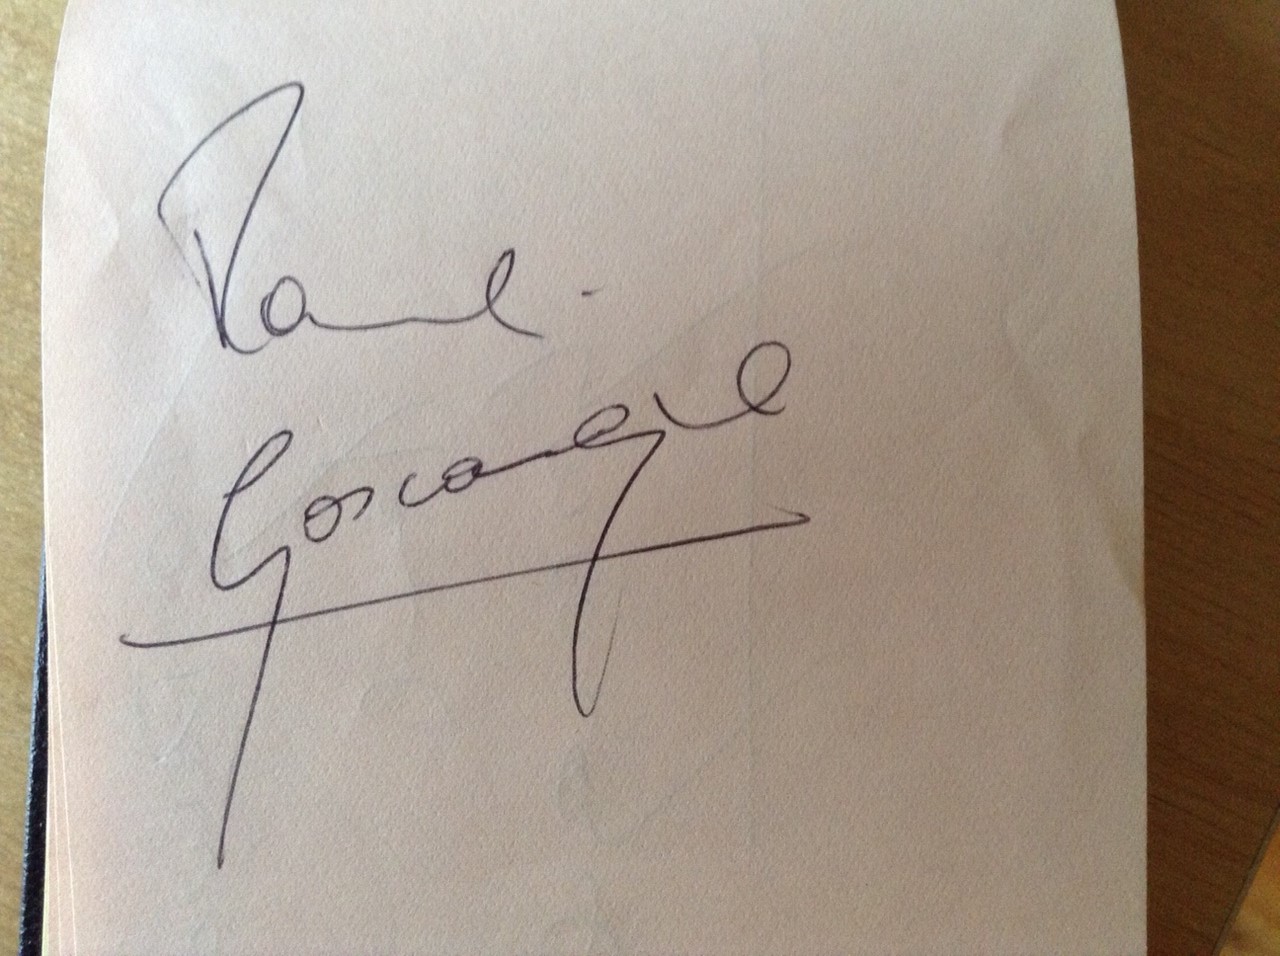 Paul
Gascoigne